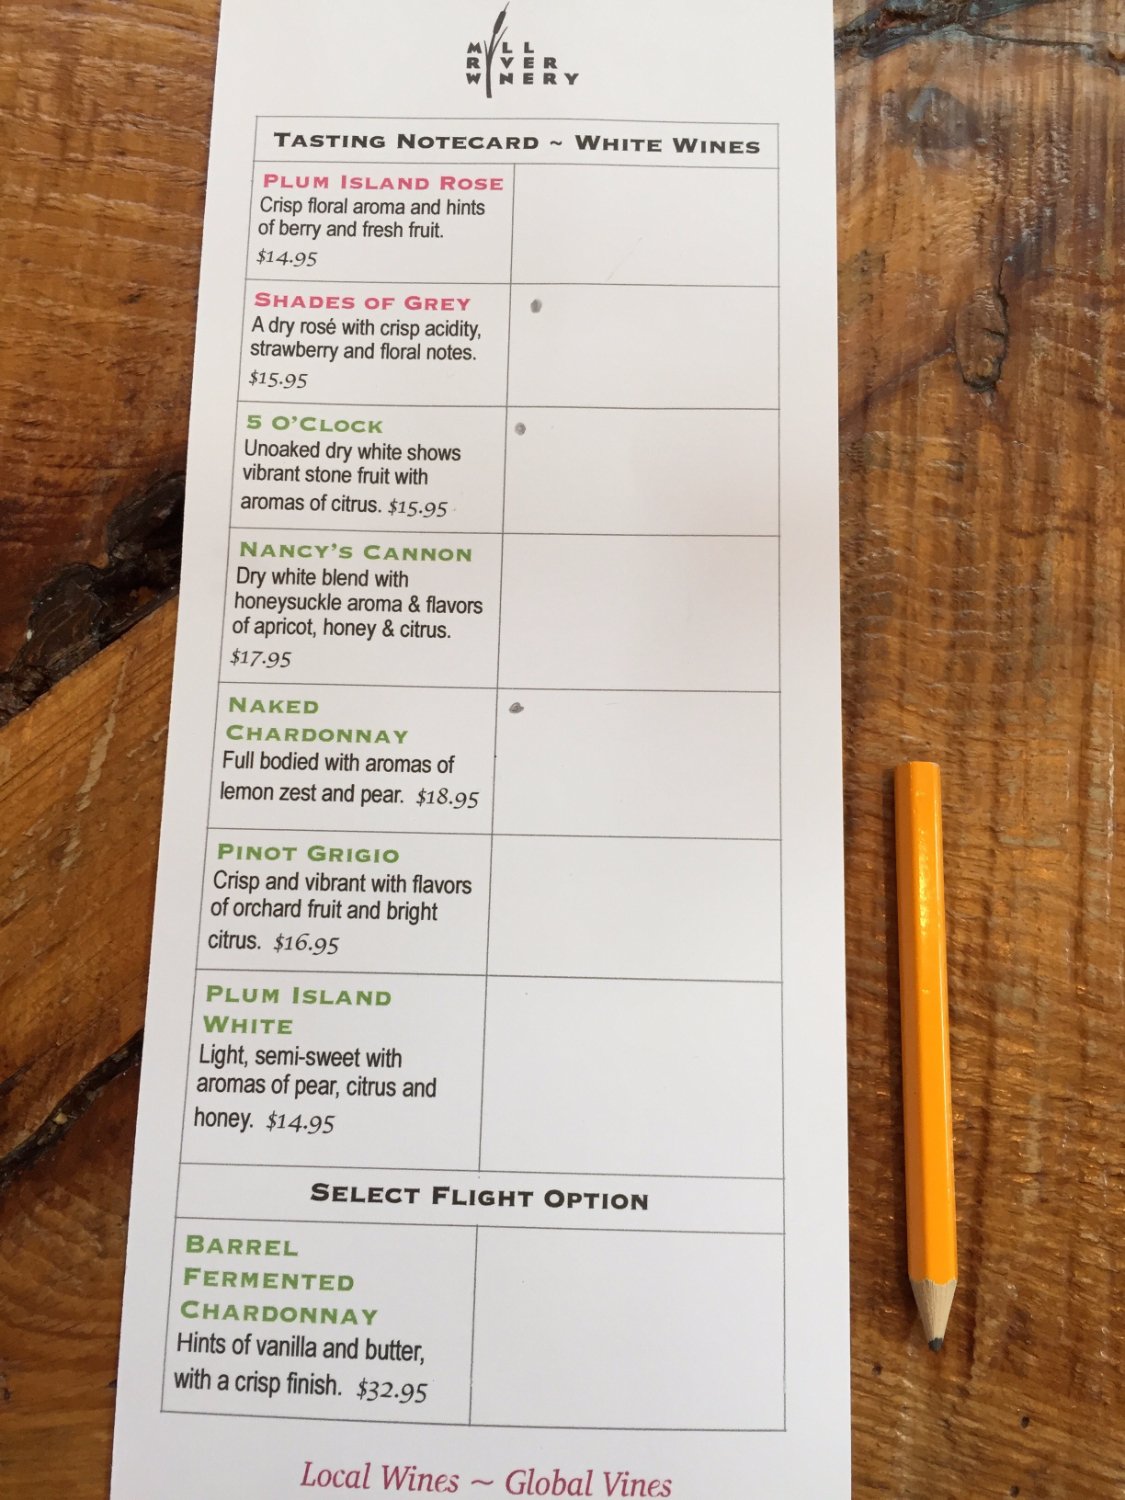 MILL
RIVER
WINERY
TASTING NOTECARD ~ WHITE WINES
PLUM ISLAND ROSE
Crisp floral aroma and hints
of berry and fresh fruit.
$14.95
SHADES OF GREY
A dry rosé with crisp acidity,
strawberry and floral notes.
$15.95
5 O'CLOCK
Unoaked dry white shows
vibrant stone fruit with
aromas of citrus. $15.95
NANCY'S CANNON
Dry white blend with
honeysuckle aroma & flavors
of apricot, honey & citrus.
$17.95
NAKED
CHARDONNAY
Full bodied with aromas of
lemon zest and pear. $18.95
PINOT GRIGIO
Crisp and vibrant with flavors
of orchard fruit and bright
citrus. $16.95
PLUM ISLAND
WHITE
Light, semi-sweet with
aromas of pear, citrus and
honey. $14.95
SELECT FLIGHT OPTION
BARREL
FERMENTED
CHARDONNAY
Hints of vanilla and butter,
with a crisp finish. $32.95
Local Wines ~ Global Vines